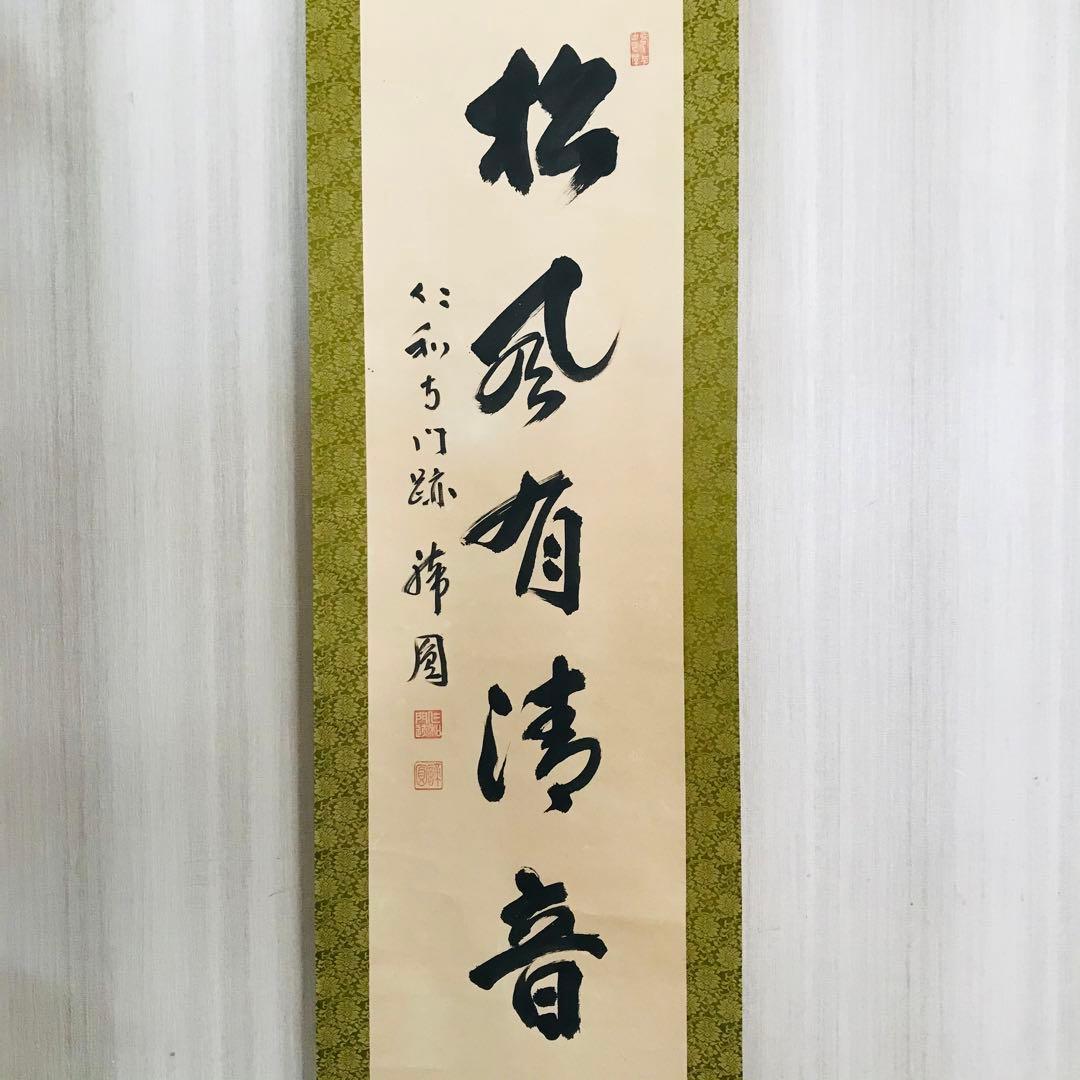 松風有清音
仁和寺門跡
圓